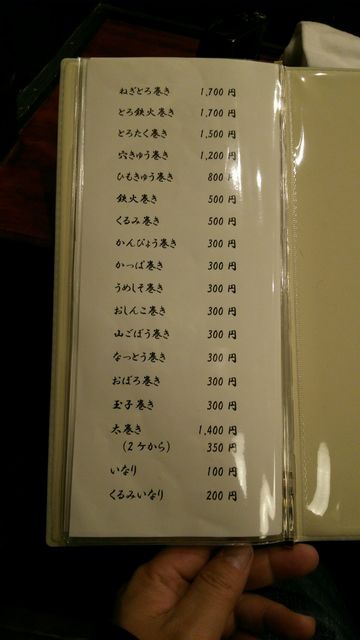 ねぎとろ巻き 1,700 円
とろ鉄火巻き 1,700 円
とろたく巻き 1,500 円
穴きゅう巻き 1,200 円
ひもきゅう巻き 800 円
鉄火巻き 500 円
くるみ巻き 500 円
かんぴょう巻き 300 円
かっぱ巻き 300 円
うめしそ巻き 300 円
おしんこ巻き 300 円
山ごぼう巻き 300 円
なっとう巻き 300 円
おぼろ巻き 300 円
玉子巻き 300 円
太巻き 1,400 円
(2ケから) 350 円
いなり 100 円
くるみいなり 200 円